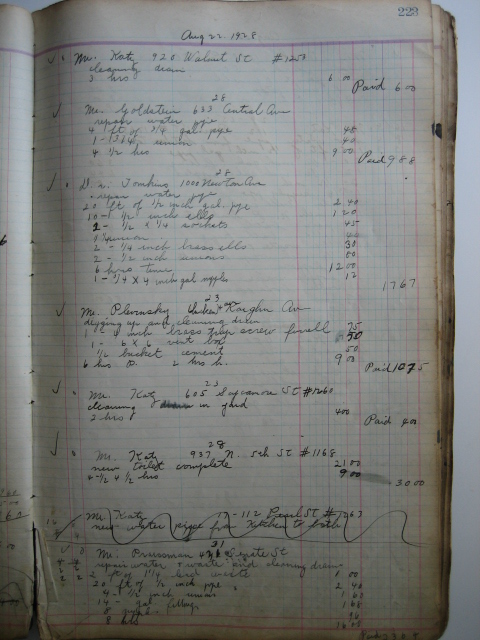 223
Aug 22. 1928
Mr. Katz 920 Walnut St #1253
cleaning drain
3 hrs 6 00
Paid 6 00
28
Mr. Goldstein 633 Central Av
repair water pipe
4 ft of 3/4 gal. pipe 48
1 - union 40
4 1/2 hrs 9 00
Paid 9 88
28
Tomkins 1000 Newton Av
repair water pipe
20 ft of 1/2 inch gal. pipe 2 40
10 - 1/2 inch ells 1 20
2 - 1/2 x 1/4 sockets 45
2 - 1/4 inch brass ells 30
2 - 1/2 inch unions 50
6 hrs time 12 00
1 - 1/4 x 4 inch gal nipples 12
17 67
23
Mr. Plevinsky Kaighn Av
digging up and cleaning drain
4 inch brass trap screw ferrell 75
1 - 6 x 6 vent box 50
1/2 bucket cement 50
6 hrs 2 hrs h. 9 00
Paid 10 75
23
Mr. Katz 605 Sycamore St #1260
cleaning drain in yard
2 hrs 4 00
Paid 4 00
28
Mr. Katz 937 N. 5th St #1168
new toilet complete 21 00
4-1/2 4 1/2 hrs 9 00
30 00
Mr. Katz - 112 Pearl St
new water pipe from Kitchen to bath
31
Mr. Prussman St
repair water & waste and cleaning drain
2 ft of 1 1/4 lead waste 1 00
20 ft of 1/2 inch pipe 2 40
4 - 1/2 inch unions 1 60
14 - gal. fittings 1 68
8
8 hrs 16 00